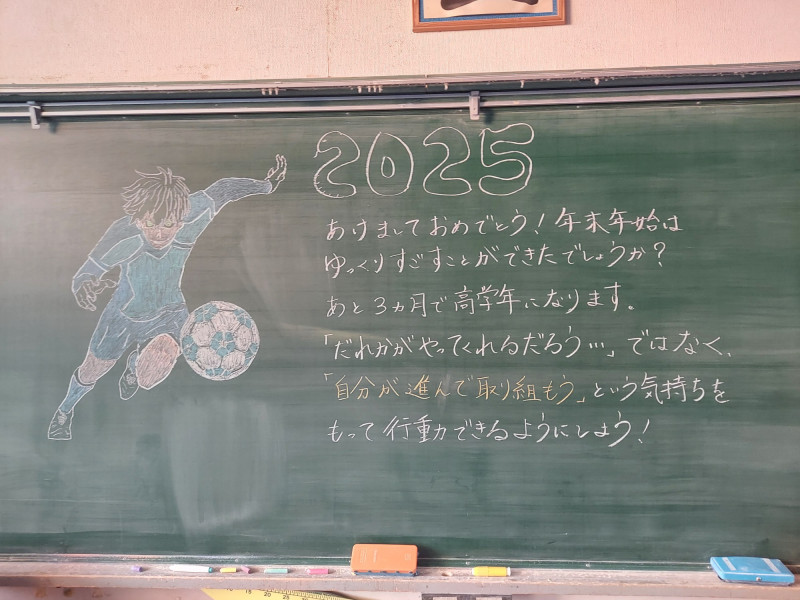 2025
あけましておめでとう！年末年始は
ゆっくりすごすことができたでしょうか？
あと3ヵ月で高学年になります。
「だれかがやってくれるだろう…」ではなく、
「自分が進んで取り組もう」という気持ちを
もって行動できるようにしよう！